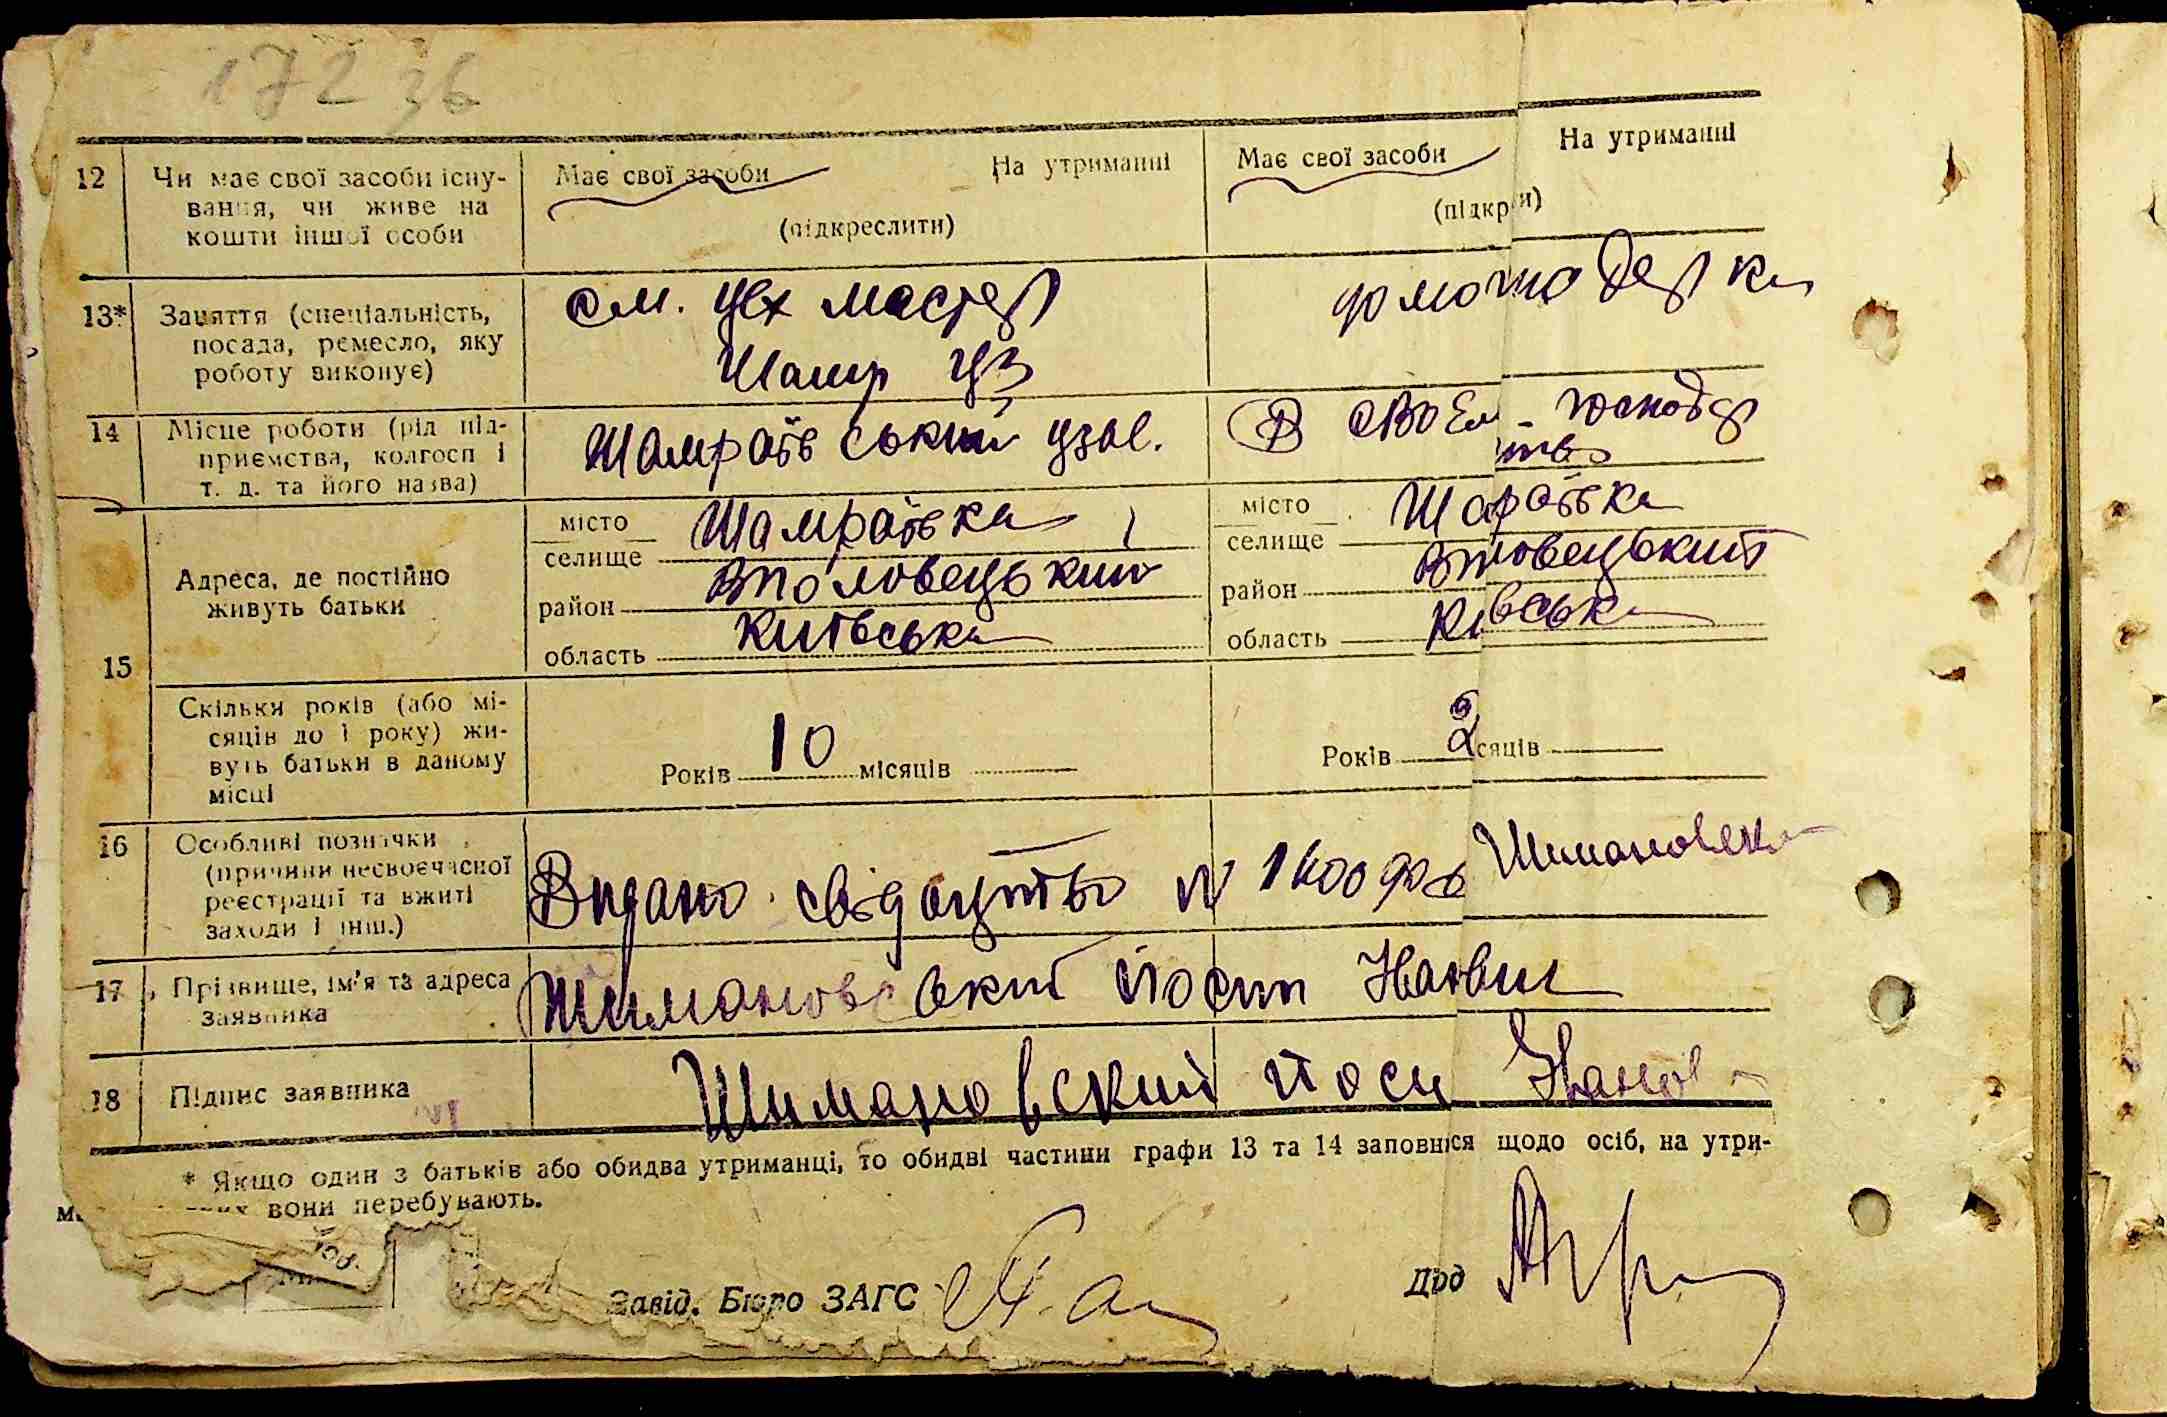 172 36
12 Чи має свої засоби існу-
вання, чи живе на
кошти іншої особи
Має свої засоби На утриманні
(підкреслити)
Має свої засоби На утриманні
(підкр и)
13* Заняття (спеціальність,
посада, ремесло, яку
роботу виконує)
см. цех мастер
Шамр цз
домогодарка
14 Місце роботи (рід під-
приємства, колгосп і
т. д. та його назва)
Шамраївський
В своем господар
ств
15 Адреса, де постійно
живуть батьки
місто
селище Шамраївка
район Вполовецький
область Київська
місто
селище Шараївка
район Вповецький
область Ківська
Скільки років (або мі-
сяців до 1 року) жи-
вуть батьки в даному
місці
Років 10 місяців
Років 2 сяців
16 Особливі позначки
(причини несвоєчасної
реєстрації та вжиті
заходи і інш.)
Видано свідоцтво N Шимановск
17 Прізвище, ім'я та адреса
заявника
Шимановський Йосип Іванович
18 Підпис заявника
Шимановский Йоси Іванов
* Якщо один з батьків або обидва утриманці, то обидві частини графи 13 та 14 заповнся щодо осіб, на утри-
м вони перебувають.
Завід. Бюро ЗАГС
Дрд